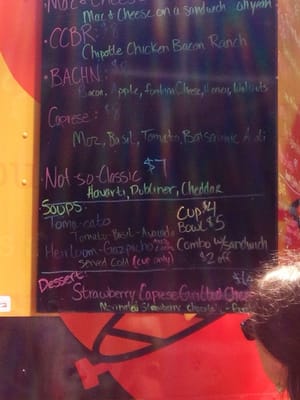 Mac & Cheese
Mac & Cheese on a sandwich
CCBR: $8
Chipotle Chicken Bacon Ranch
BACHN:
Bacon, Apple, Fontina Cheese, Honey, Walnuts
Caprese: $8
Moz, Basil, Tomato, Balsamic Aoli
Not-so-Classic $7
Havarti, Dubliner, Cheddar
Soups:
Cup $4
Toma-cato
Bowl $5
Tomato-Basil-Avocado
Heirloom-Gazpacho
Combo w/ Sandwich
Served Cold (Cup only)
$2 off
Dessert:
Strawberry Caprese Grilled Cheese
Strawberry